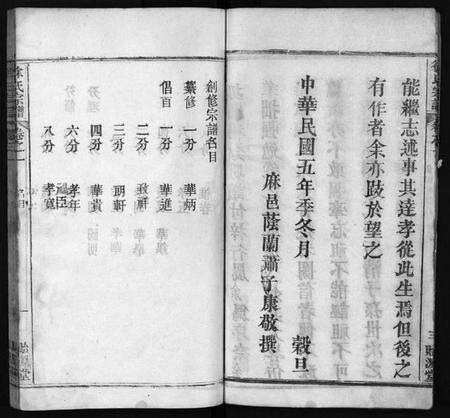 能繼志述事其達孝從此生焉但後之
有作者余亦跂於望之
中華民國五年季冬月 穀旦
麻邑蔭蘭蕭子康敬撰
創修宗譜名目
纂修 一分 華炳
倡首 一分 華進
二分 致祥
三分 明軒
四分 華貴
六分 孝年 福臣
八分 孝寬
徐氏宗譜 卷之一